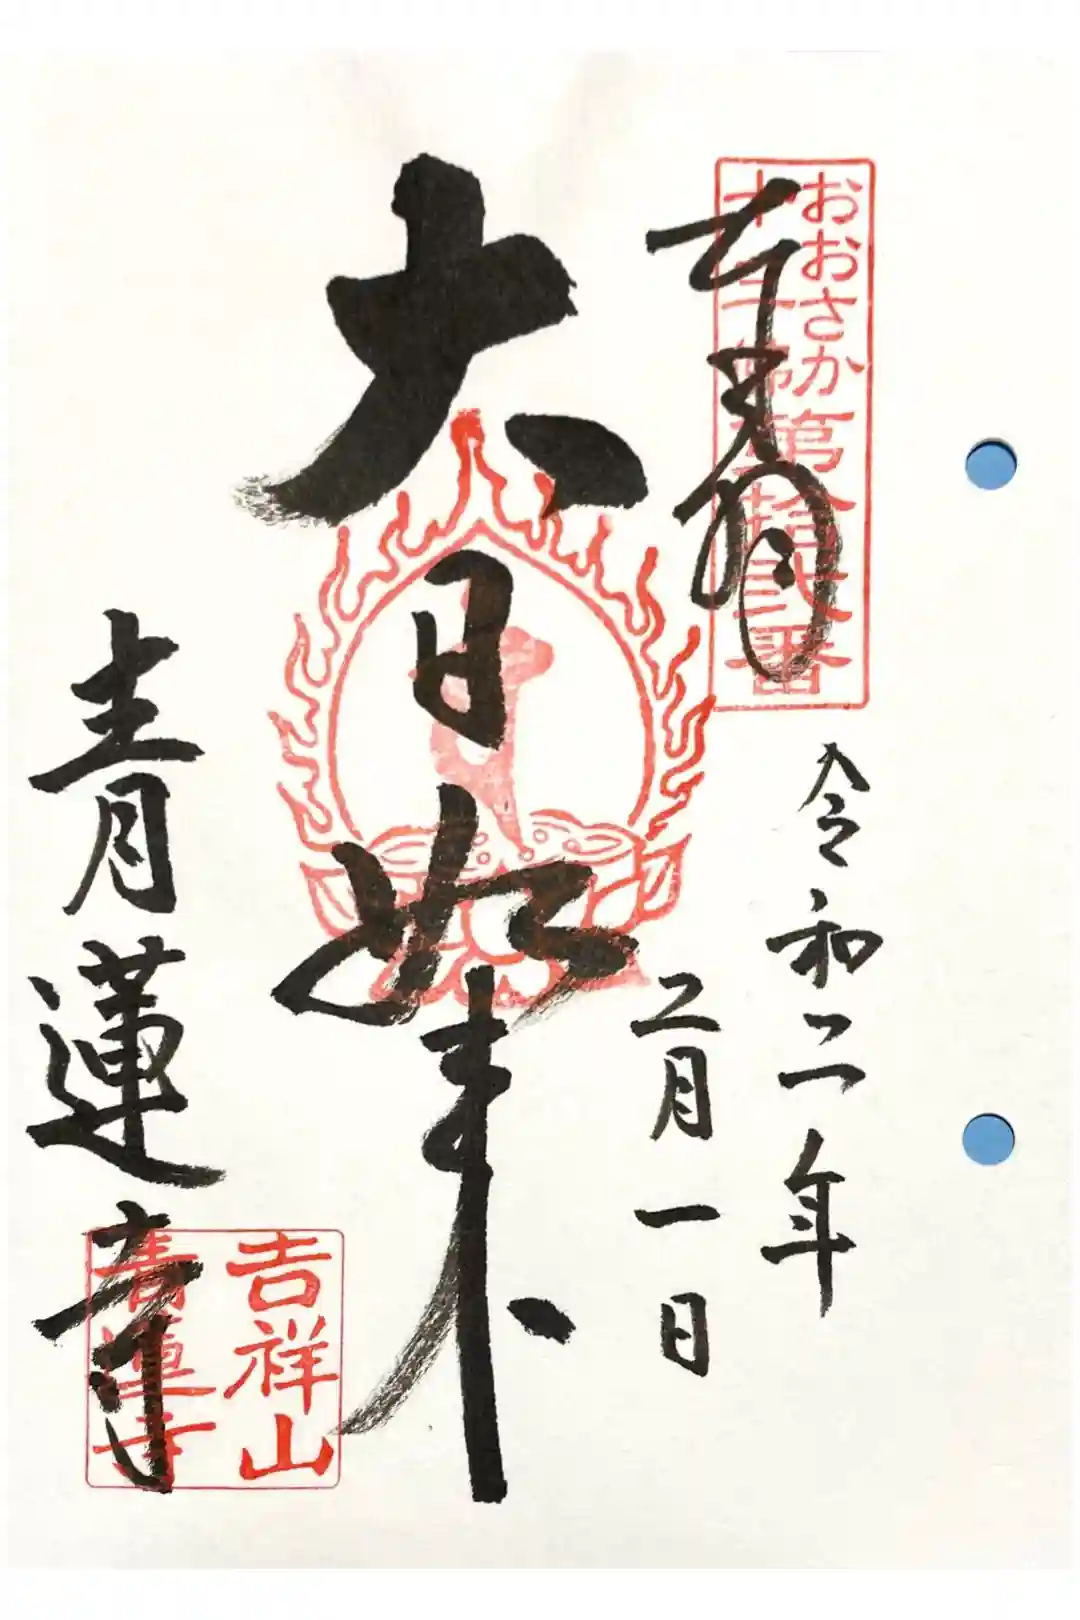 おおさか
十三佛
第拾弐番
奉拝
令和二年
二月一日
大日如来
青蓮寺
吉祥山
青蓮寺